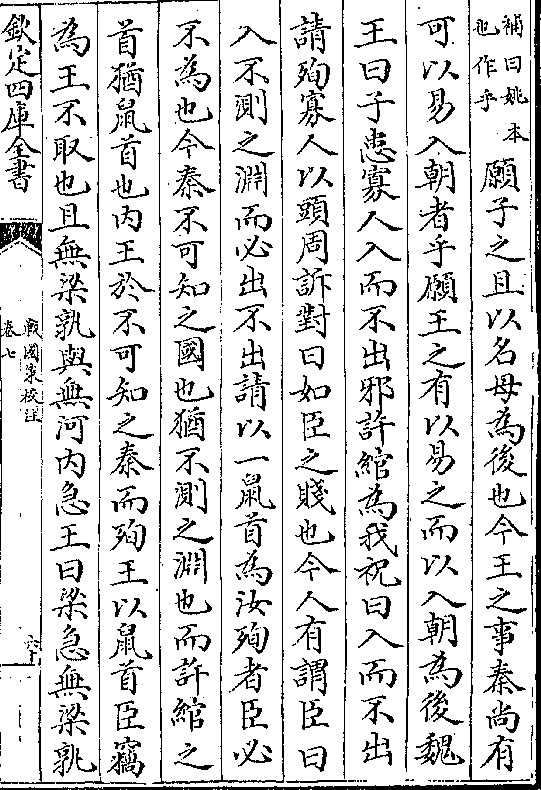 補曰姚本
也作乎
願子之且以名母為後也今王之事秦尚有
可以易入朝者乎願王之有以易之而以入朝為後魏
王曰子患寡人入而不出邪許綰為我祝曰入而不出
請殉寡人以頭周訴對曰如臣之賤也今人有謂臣曰
入不測之淵而必出不出請以一鼠首為汝殉者臣必
不為也今秦不可知之國也猶不測之淵也而許綰之
首猶鼠首也内王於不可知之秦而殉王以鼠首臣竊
為王不取也且無梁孰與無河内急王曰梁急無梁孰
欽定四庫全書
戰國策校注
卷七
六十